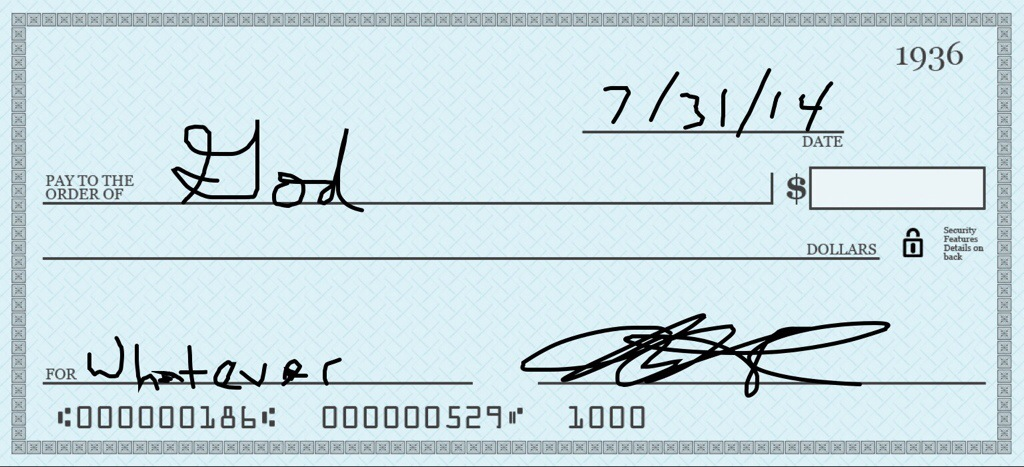 1936
7/31/14
DATE
PAY TO THE
ORDER OF God $
DOLLARS
Security
Features
Details on
back
FOR Whatever
⑆000000186⑆ 000000529⑈ 1000